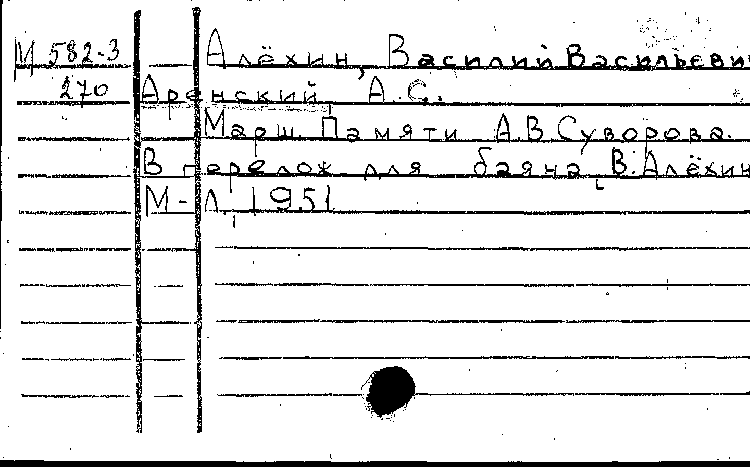 М 582-3 Алёхин, Василий Васильевич
270 Аренский А.С.
Марш. Памяти А.В. Суворова.
В перелож для баяна В. Алёхин
М-Л, 1951